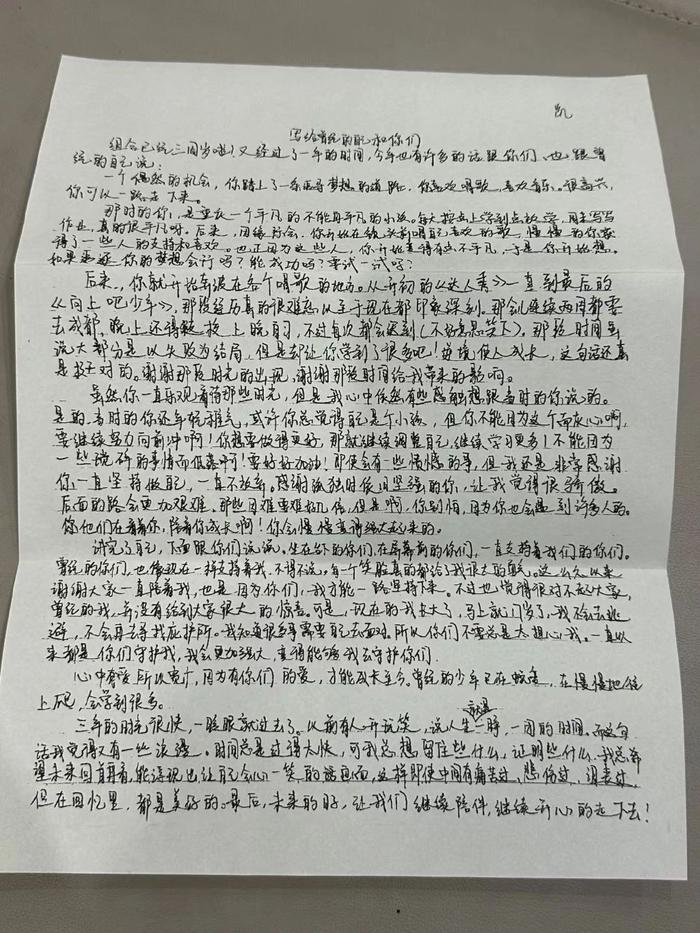 凯
写给曾经的自己和你们
组合已经三周岁啦！又经过了一年的时间，今年也有许多的话跟你们，也跟曾
经的自己说：
一个偶然的机会，你踏上了一条追寻梦想的道路，你喜欢唱歌，喜欢音乐。很高兴，
你可以一路走下来。
那时的你，是重庆一个平凡的不能再平凡的小孩。每天按点上学到点放学，周末写写
作业，真的很平凡呀。后来，因缘际会，你开始在镜头前唱自己喜欢的歌，慢慢的你获
得了一些人的支持和喜欢。也正因为这些人，你开始变得有些不平凡，于是你开始想，
如果这是你的梦想会行吗？能成功吗？要试一试吗？
后来，你就开始辗转在各个唱歌的地方。从开初的《达人秀》一直到最后的
《向上吧少年》，那段经历真的很难忘以至于现在都印象深刻。那会儿连续两周都要
去成都，晚上还得赶技上晚自习，不过每次都会迟到（不好意思笑下）。那段时间虽
说大部分是以失败为结局，但是却让你学到了很多吧！逆境使人成长，这句话还真
是挺对的。谢谢那段时光的出现，谢谢那段时间给我带来的歌啊。
虽然你一直乐观看待那些时光，但是我心中依然有些感触想跟当时的你说的。
是的，当时的你还年轻稚气，或许你总觉得自己是个小孩，但你不能因为这个而灰心啊，
要继续努力向前冲啊！你想要做得更好，那就继续调整自己，继续学习更多！不能因为
一些挫折的事情而低落啊！要好好加油！即使会有一些愤憾的事，但我还是非常感谢
你一直坚持做自己，一直不放弃。感谢孤独时候坚强的你，让我觉得很骄傲。
后面的路会更加艰难。那些困难要难好几倍，但是啊，你别怕，因为你也会遇到许多人的。
你他们在看着你，陪着你成长啊！你会慢慢变得强大起来的。
讲完了自己，下面跟你们说说。坐在台下的你们，在屏幕前的你们，一直支持着我们的你们。
曾经的你们，也像现在一样支持着我。不得不说，每一个笑脸真的都给了我很大的勇气。这么久以来
谢谢大家一直陪着我，也是因为你们，我才能一路坚持下来。不过也觉得很对不起大家，
曾经的我，并没有给到大家很大的惊喜。可是，现在的我长大了，马上就17岁了，我不会去逃
避，不会再去寻找庇护所。我知道很多事需要自己去面对。所以你们不需总是太担心我。一直以
来都是你们守护我，我会更加强大，变得能够我去守护你们。
心中有爱所以累计，因为有你们的爱，才能成长至今。曾经的少年已在蜕变，在慢慢地往
上爬，会学到很多。
三年的时光很快，一眨眼就过去了。以前有人开玩笑，说人生就是一睁，一闭的时间。而这句
话我觉得又有一丝浪漫。时间总是过得太快，可我总想留住些什么，证明些什么。我总希
望未来回首再看，能浮现出让自己会心一笑的画面，这样即使中间有痛苦过，悲伤过，沮丧过，
但在回忆里，都是美好的。最后，未来的日子，让我们继续陪伴，继续开心的走下去！